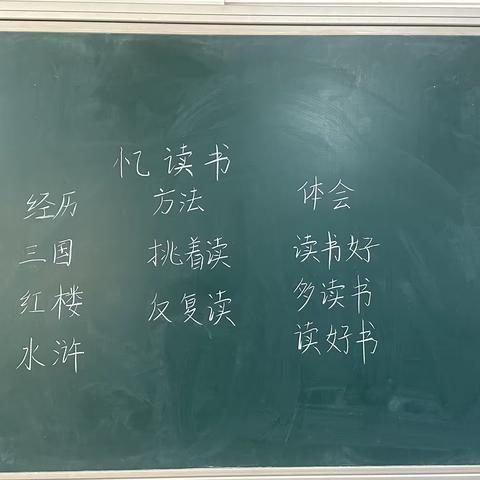 忆读书
经历 方法 体会
三国 挑着读 读书好
红楼 反复读 多读书
水浒 读好书